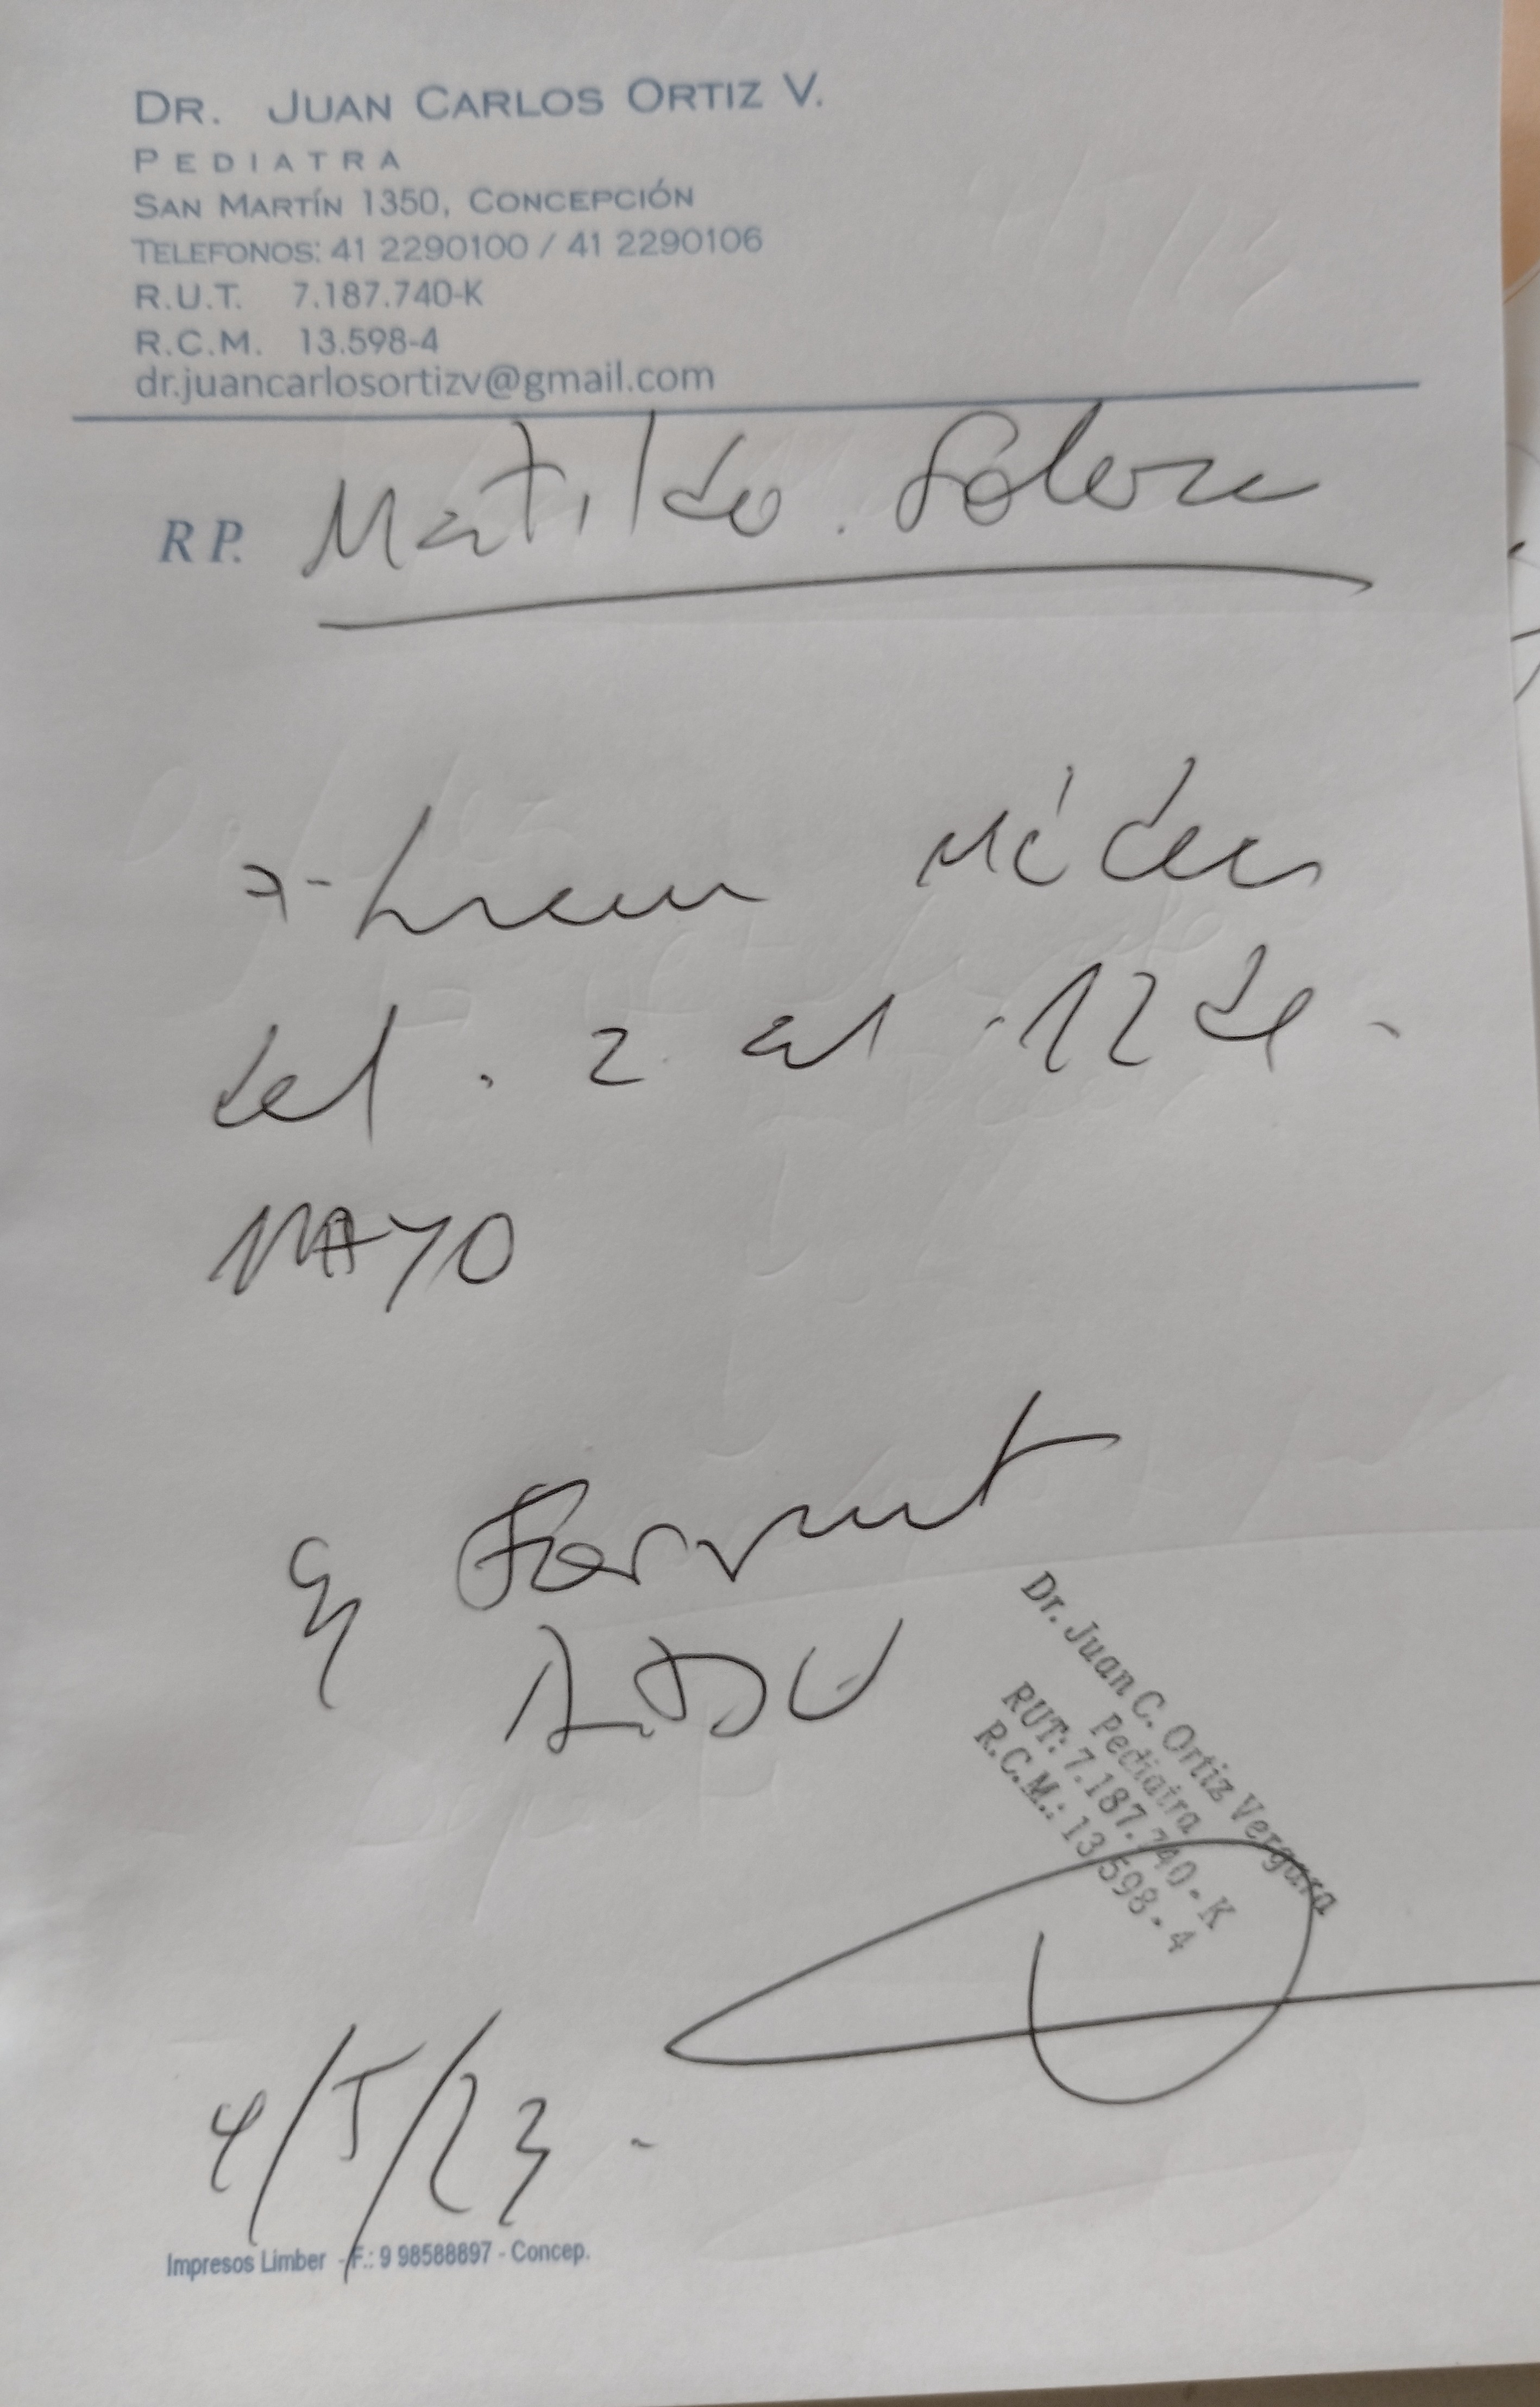 DR. JUAN CARLOS ORTIZ V.
PEDIATRA
SAN MARTÍN 1350, CONCEPCIÓN
TELEFONOS: 41 2290100 / 41 2290106
R.U.T. 7.187.740-K
R.C.M. 13.598-4
dr.juancarlosortizv@gmail.com
R P. Matilda
del . 2 al 12 de
MAYO
Dr. Juan C. Ortiz Vergara
Pediatra
RUT: 7.187.740 - K
R.C.M.: 13.598 - 4
4/5/23 -
Impresos Limber - F.: 9 98588897 - Concep.